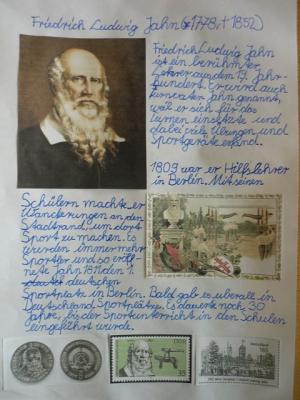 Friedrich Ludwig Jahn (*1778, † 1852)
Friedrich Ludwig Jahn
ist ein berühmter
Lehrer aus dem 19. Jahr-
hundert. Er wird auch
Turnvater Jahn genannt,
weil er sich für das
Turnen einsetzte und
dabei viele Übungen und
Sportgeräte erfand.
1809 war er Hilfslehrer
in Berlin. Mit seinen
Schülern machte er
Wanderungen an den
Stadtrand, um dort
Sport zu machen. Es
wurden immer mehr
Sportler und so eröff-
nete Jahn 1811 den 1.
deutschen
Sportplatz in Berlin. Bald gab es überall in
Deutschland Sportplätze. Es dauerte noch 30
Jahre, bis der Sportunterricht in den Schulen
eingeführt wurde.
DDR